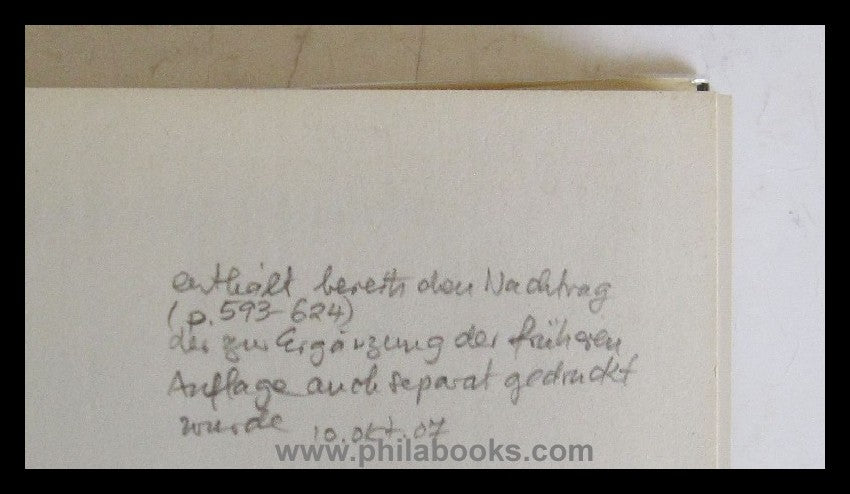 enthält bereits den Nachtrag
(p. 593-624)
der zur Ergänzung der früheren
Auflage auch separat gedruckt
wurde 10. Okt. 07
www.philabooks.com